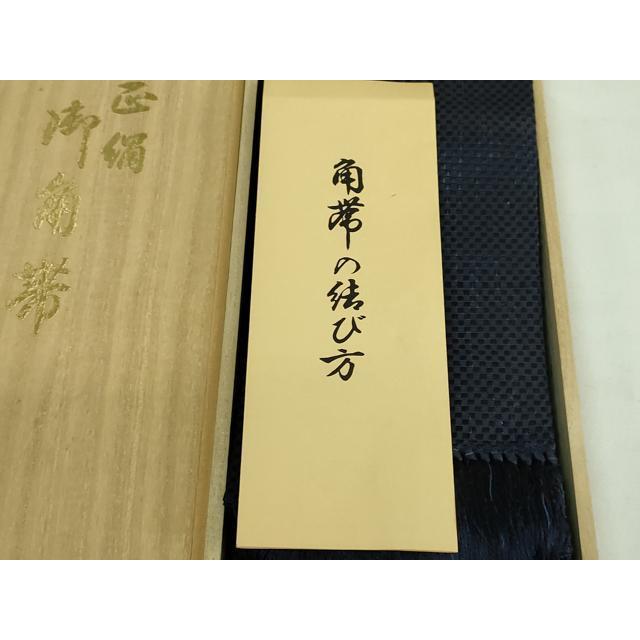 正絹
御角帯
角帯の結び方